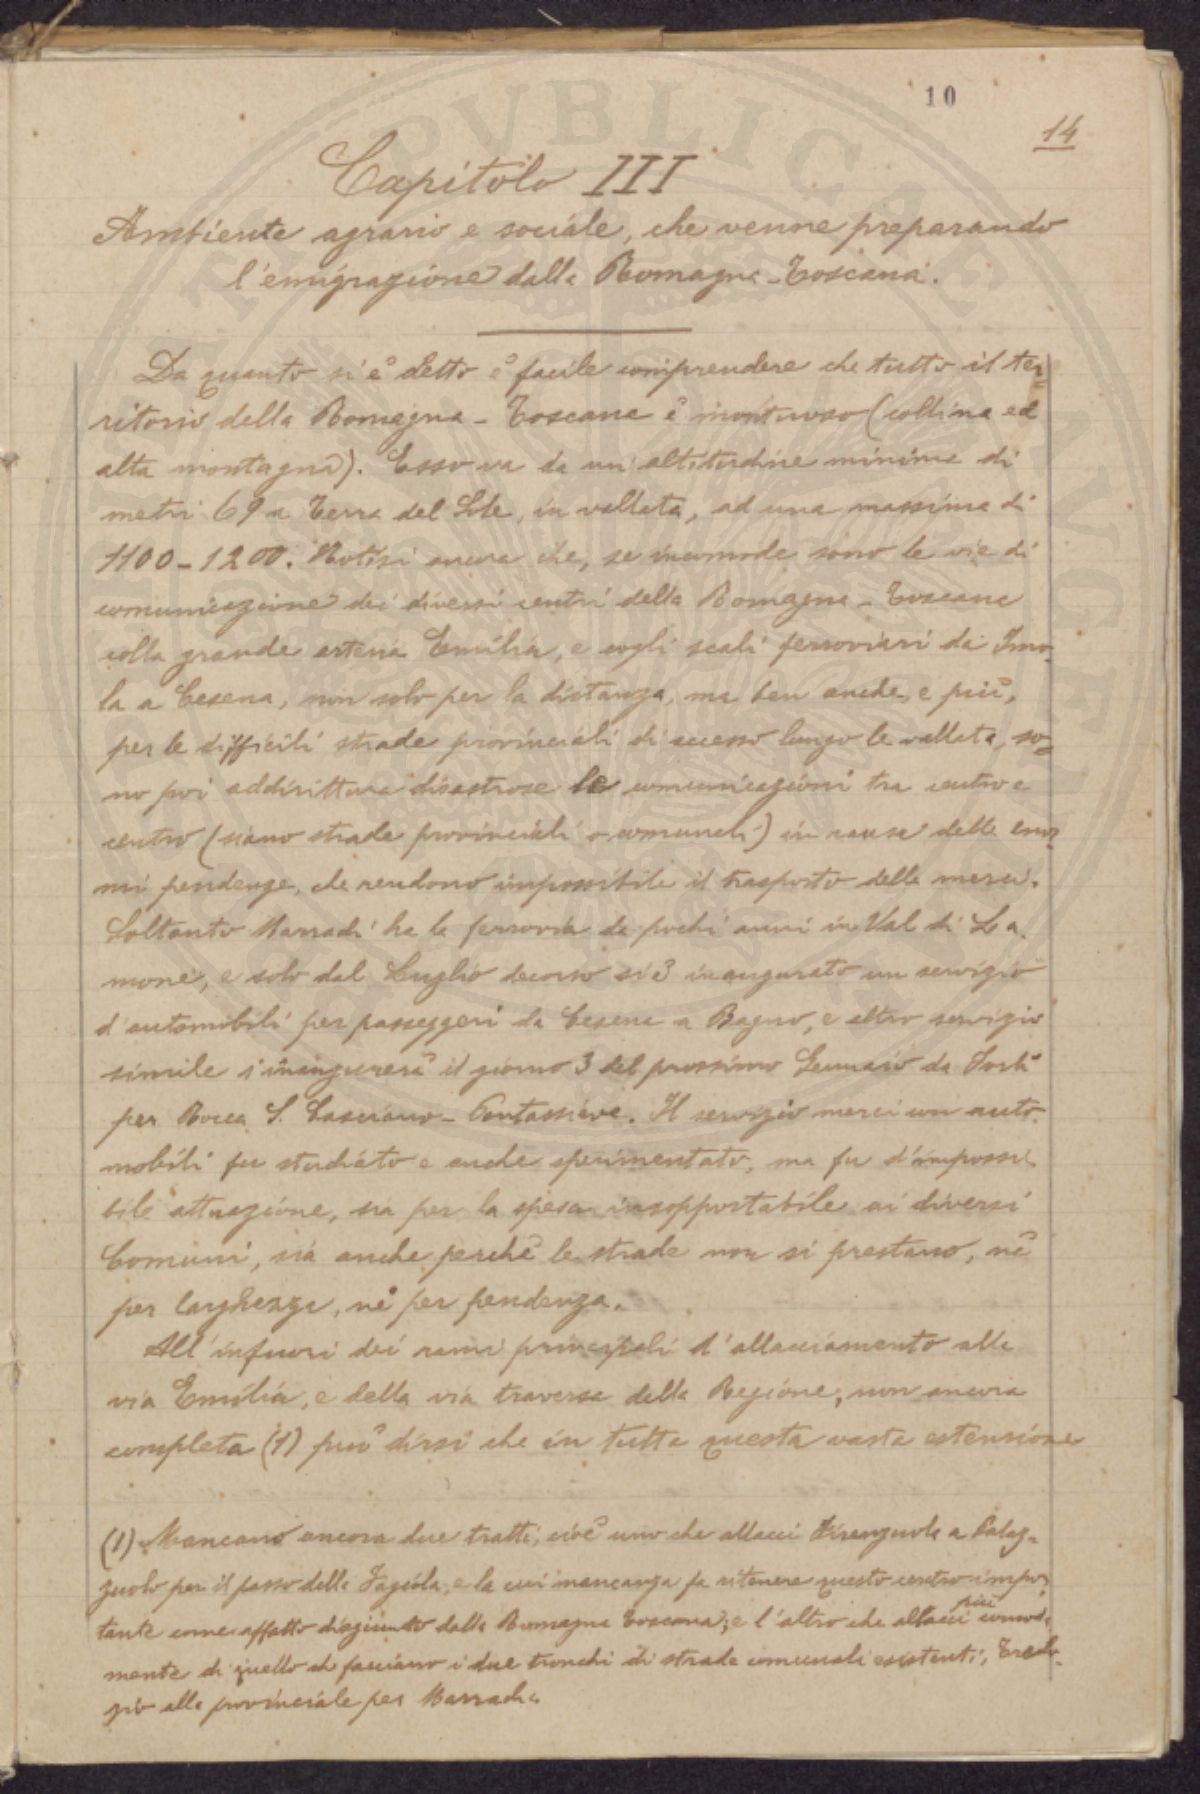 10
14
Capitolo III
Ambiente agrario e sociale, che venne preparando
l'emigrazione dalla Romagna-Toscana.
Da quanto si è detto è facile comprendere che tutto il ter=
ritorio della Romagna-Toscana è montuoso (collina ed
alta montagna). Esso va da un'altitudine minima di
metri 69 a Terra del Sole, in vallata, ad una massima di
1100-1200. Notisi ancora che, se incomode sono le vie di
comunicazione dei diversi centri della Romagna-Toscana
colla grande arteria Emilia, e cogli scali ferroviari da Imo-
la a Cesena, non solo per la distanza, ma ben anche, e più,
per le difficili strade provinciali di accesso lungo le vallate, so=
no poi addirittura disastrose le comunicazioni tra centro e
centro (siano strade provinciali o comunali) in causa delle enor
mi pendenze, che rendono impossibile il trasporto delle merci.
Soltanto Marradi ha la ferrovia da pochi anni in Val di La-
mone, e solo dal Luglio decorso si è inaugurato un servizio
d'automobili per passeggeri da Cesena a Bagno, e altro servizio
simile s'inaugurerà il giorno 3 del prossimo Gennaio da Forlì
per Rocca S. Casciano-Pontassieve. Il servizio merci con auto-
mobili fu studiato e anche sperimentato, ma fu d'impossi-
bile attuazione, sia per la spesa insopportabile ai diversi
Comuni, sia anche perchè le strade non si prestano, nè
per larghezza, nè per pendenza.
All'infuori dei rami principali d'allacciamento alla
via Emilia, e della via traversa della Regione, non ancora
completa (1) può dirsi che in tutta questa vasta estensione
(1) Mancano ancora due tratti, cioè uno che allacci Firenzuola a Palaz-
zuolo per il passo della Faggiola, e la cui mancanza fa ritenere questo centro impor-
tante come affatto disgiunto dalla Romagna Toscana; e l'altro che allacci più comoda-
mente di quello che facciano i due tronchi di strade comunali esistenti, Tredo-
zio alla provinciale per Marradi.
PVBLICAE